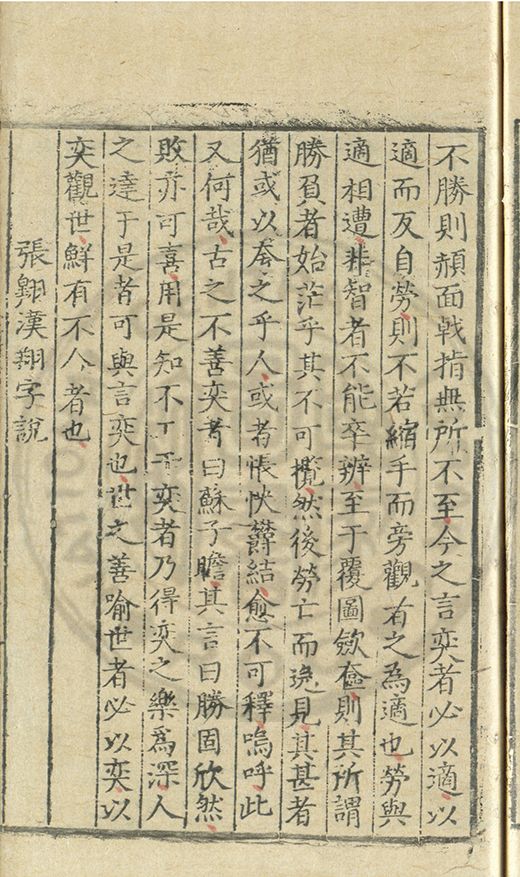 不勝則頳面戟指無所不至今之言奕者必以適以
適而反自勞則不若縮手而旁觀者之為適也勞與
適相遭非智者不能卒辦至于覆圖斂奩則其所謂
勝負者始茫乎其不可攬然後勞亡而逸見其甚者
猶或以奩之乎人或者悵怏欝結愈不可釋嗚呼此
又何哉古之不善奕者曰蘇子瞻其言曰勝固欣然
敗亦可喜用是知不工于奕者乃得奕之樂為深人
之達于是者可與言奕也世之善喻世者必以奕以
奕觀世鮮有不合者也
張翱漢翔字說